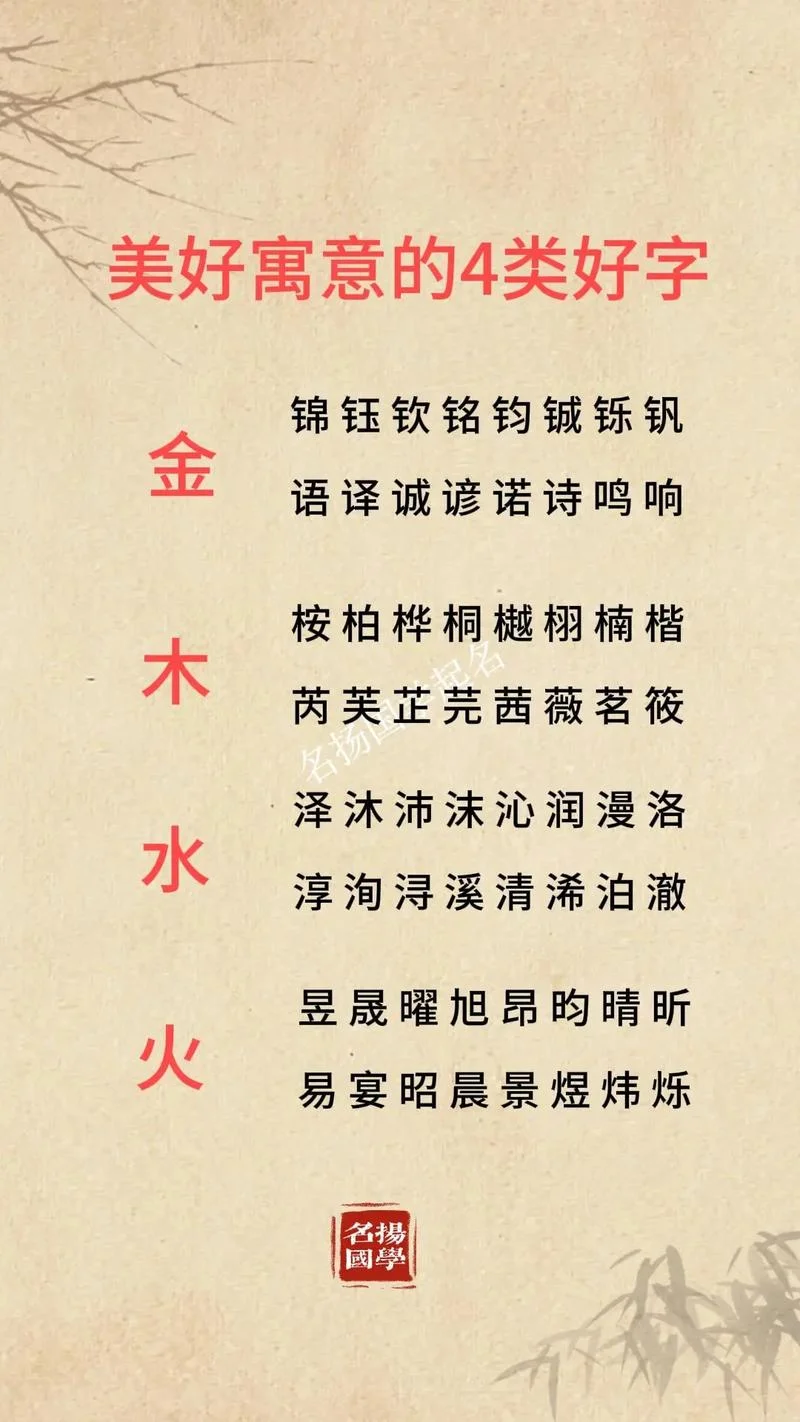 美好寓意的4类好字
金
锦钰钦铭钧铖铄钒
语译诚谚诺诗鸣响
木
桉柏桦桐樾栩楠楷
芮芙芷芫茜薇茗筱
水
泽沐沛沫沁润漫洛
淳洵浔溪清浠泊澈
火
昱晟曜旭昂昀晴昕
易宴昭晨景煜炜烁
名扬国学起名
名揚
國學